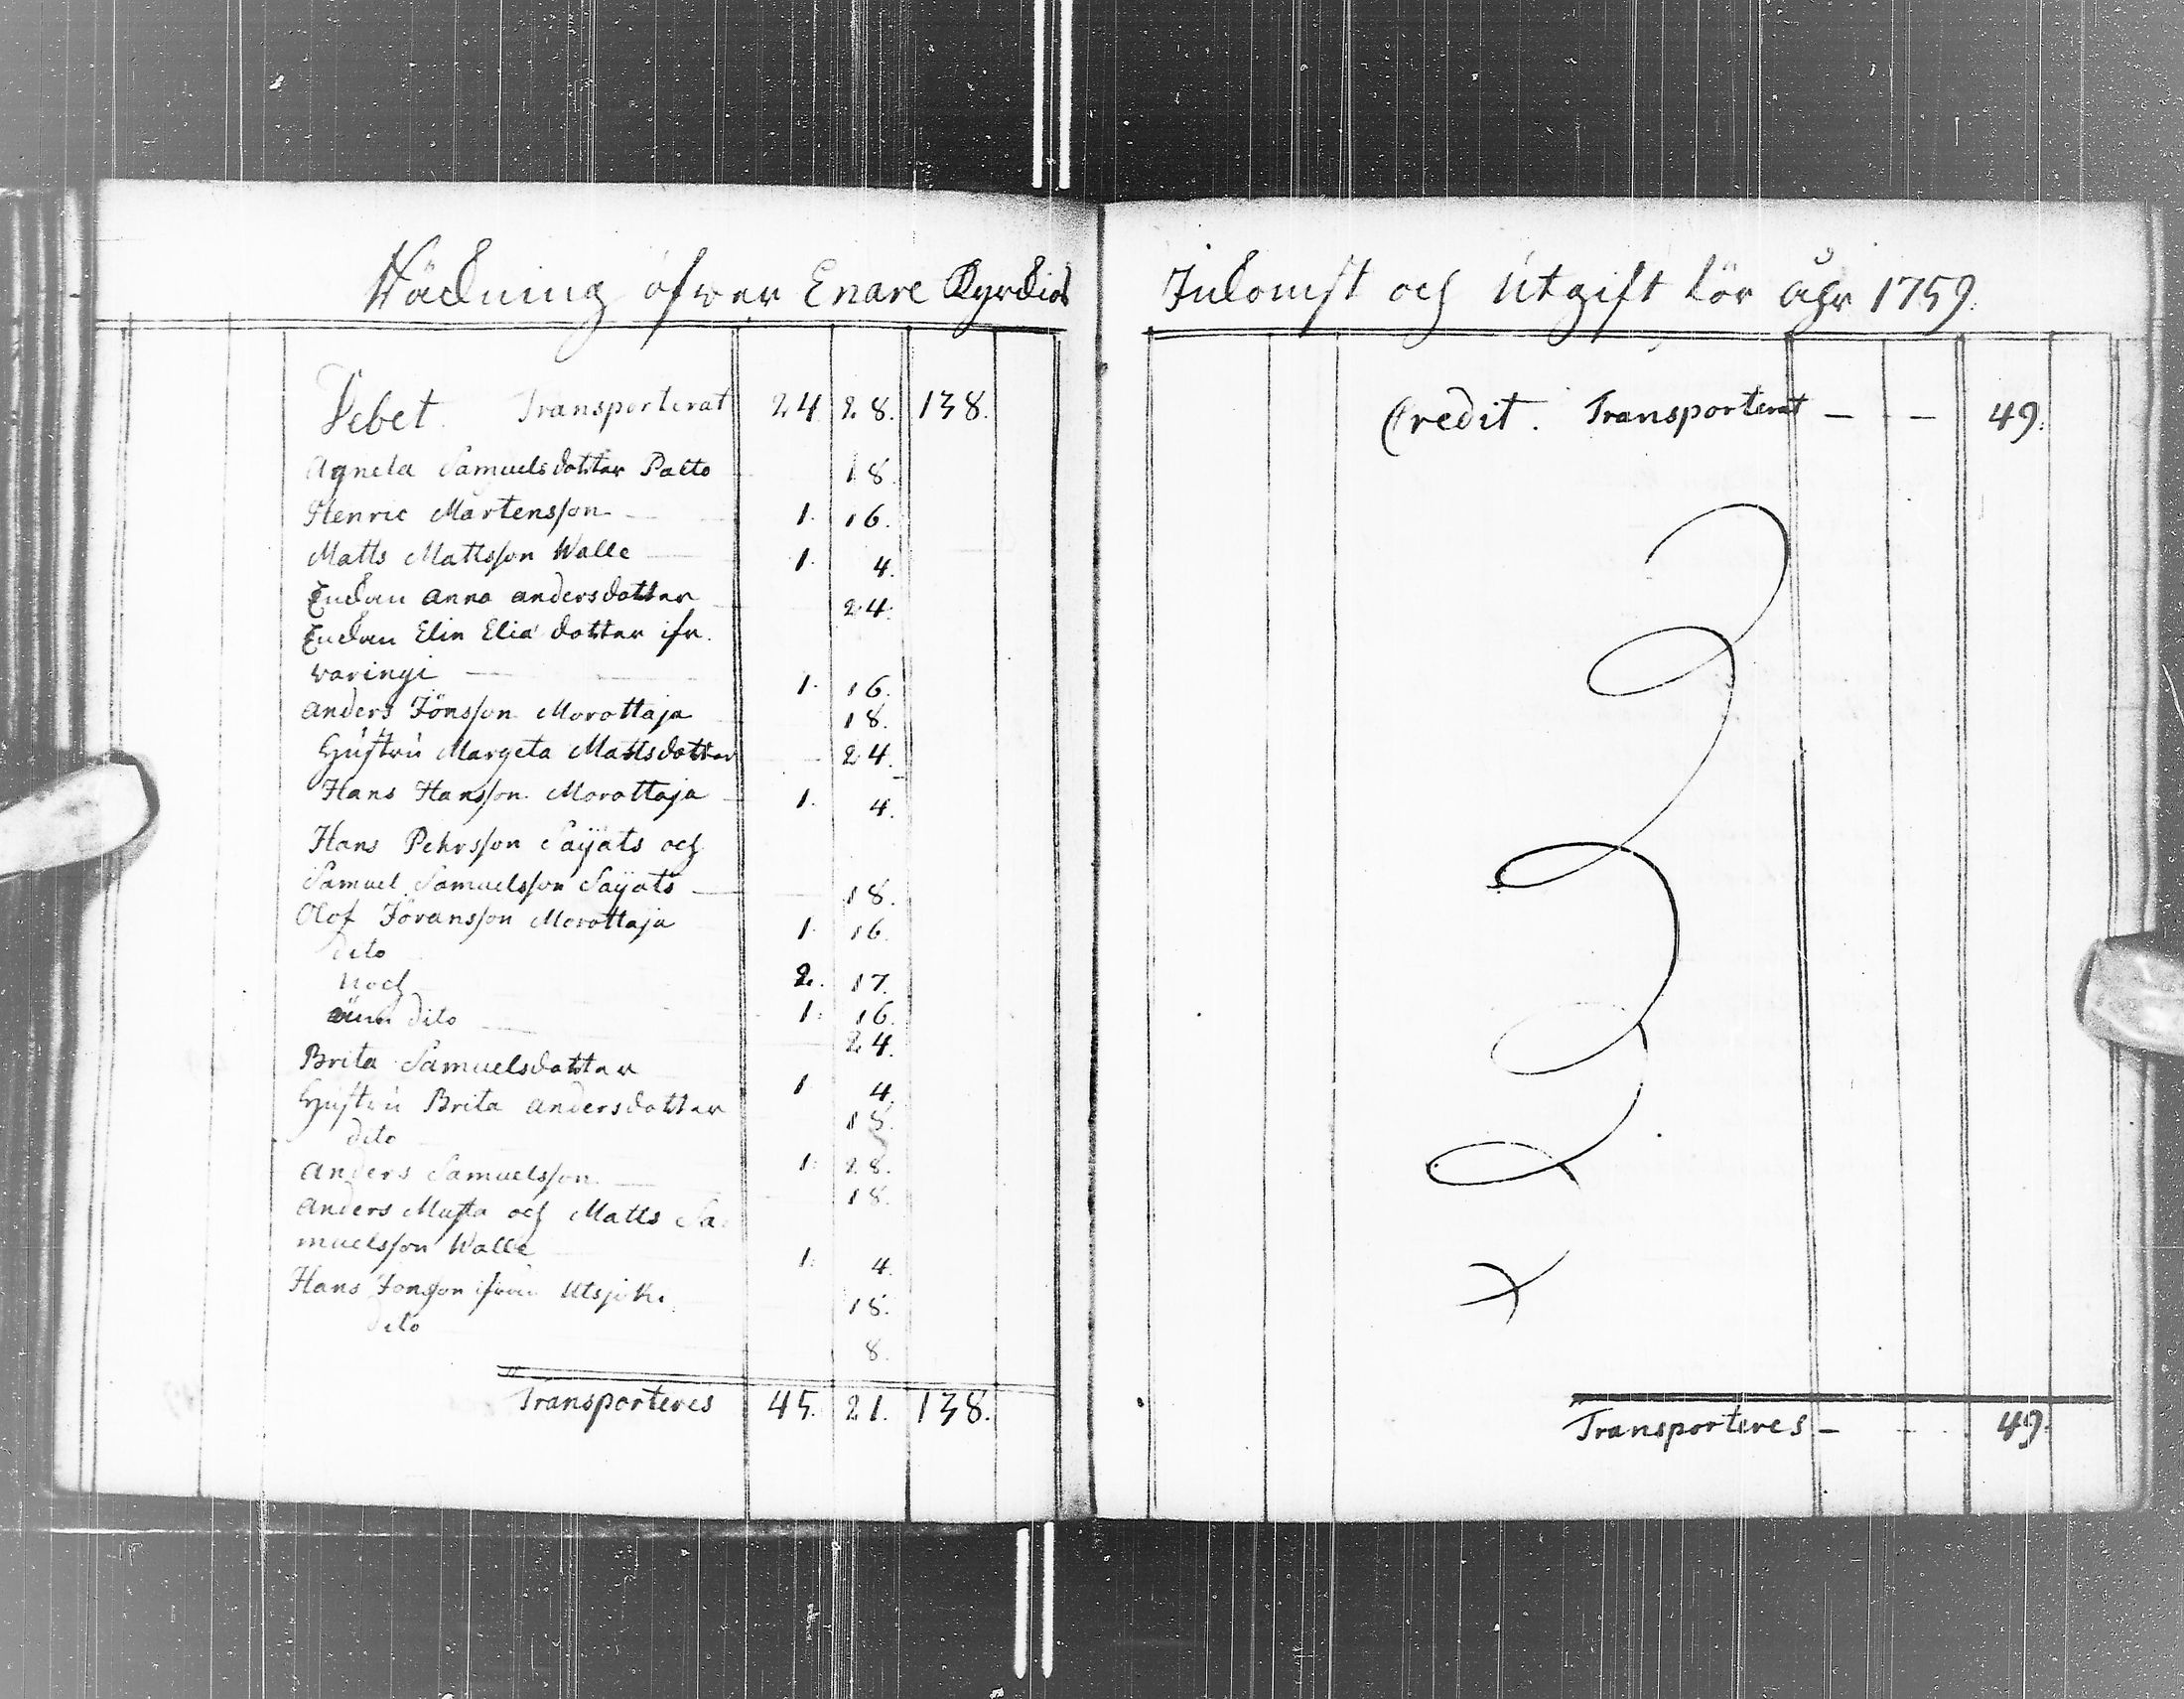 Räckning öfwer Enare Kyrckios
Debet. Transporterat 24 28. 138.
Agneta Samuelsdotter Palto 18.
Henric Mårtensson 1. 16.
Matts Mattsson Walle 1. 4.
Enckan anna andersdotter 24.
Enckan Elin Elia dotter ifr.
waringi 1. 16.
anders Jönsson Morottaja 18.
Hustrú Margeta Mattsdotter 24.
Hans Hansson Morottaja 1. 4.
Hans Pehrsson Saÿats och
Samuel Samuelsson Saÿats 18.
Olof Jöransson Morottaja 1. 16.
dito
noch 2. 17.
änn dito 1. 16.
24.
Brita Samuelsdotter
1 4.
Hustrú Brita andersdotter
18.
dito
anders Samuelsson 1. 28.
18.
anders Musta och Matts Sa
muelsson Walle 1. 4.
Hans Jonsson ifrån Utsjoki 18.
dito
8.
Transporteres 45. 21. 138.
Inkomst och Utgift för åhr 1759.
Credit. Transporterat — — 49.
Transporteres — 49.